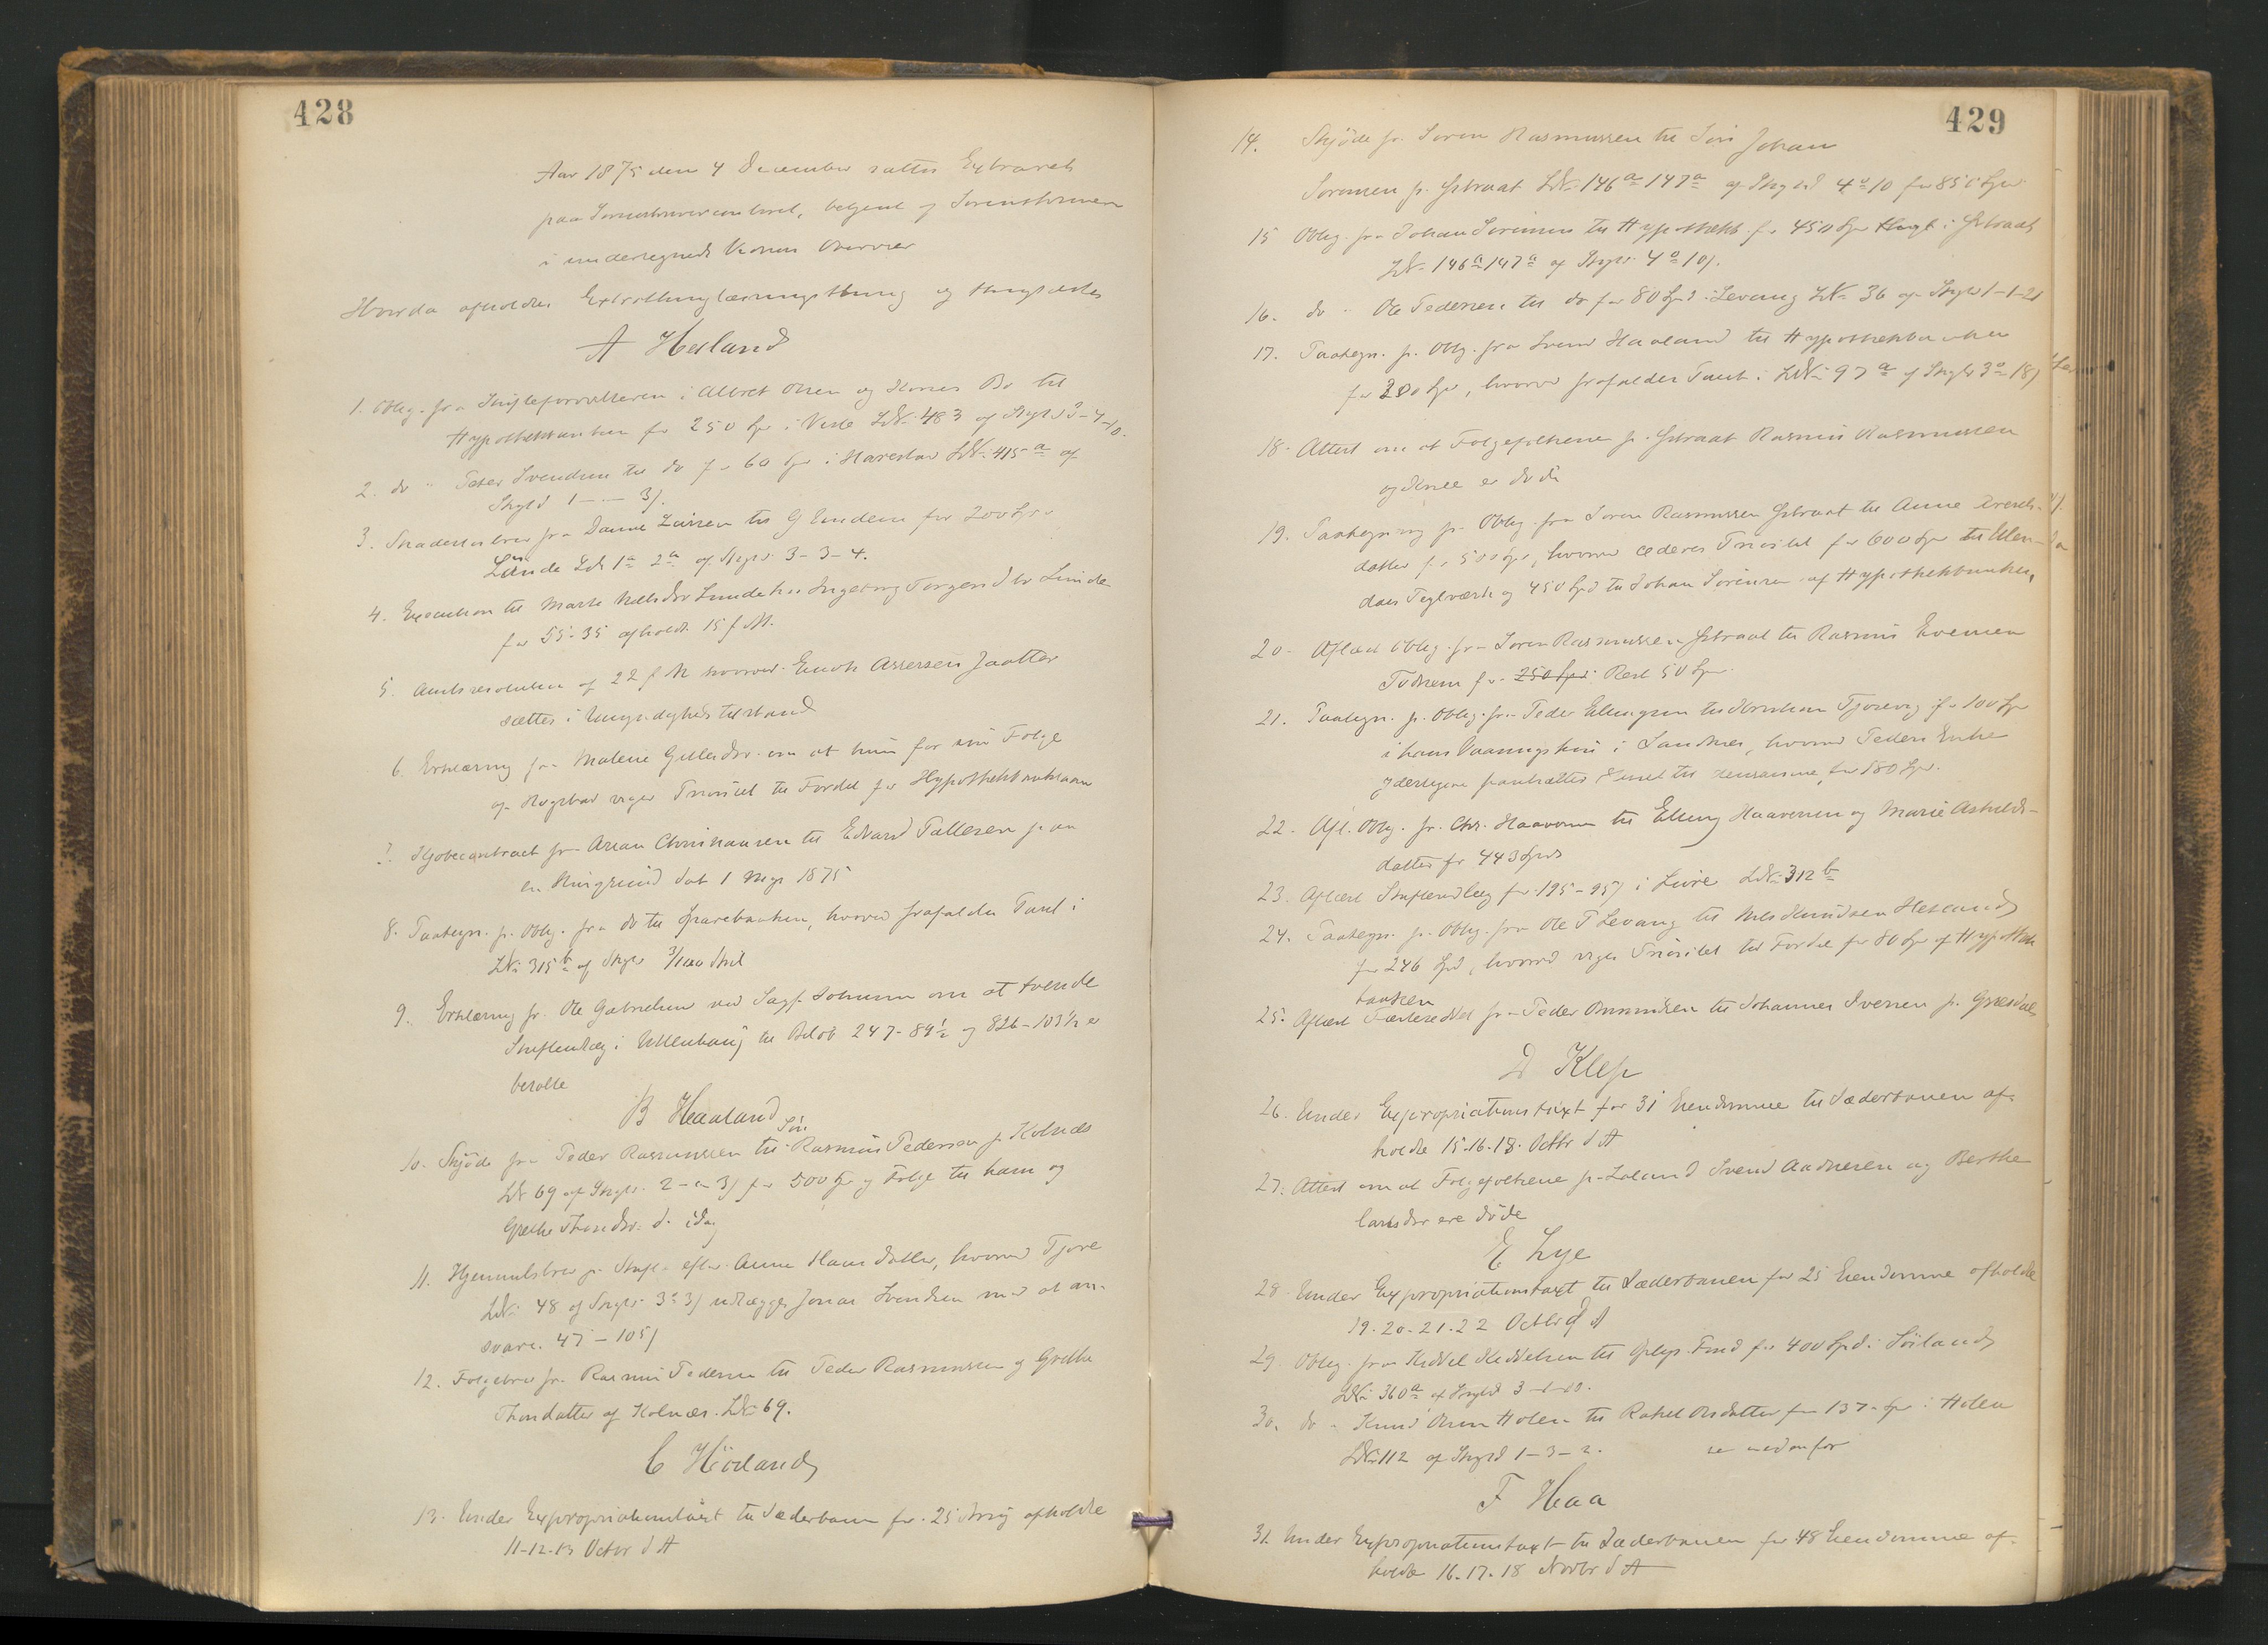 428
Aar 1875 den 4 December sattes Extraret
paa Sorenskrivercontoret, betjent af Sorenskriveren
i undertegnede Vidners Overvær
Hvorda afholdtes Extrathinglæsningsthing og thinglæstes
A Hesland
1. Oblig. fra Skifteforvalteren i Albret Olsen og Kones Bo til
Hypothekbanken for 250 Spd i Vesle LN: 483 af Skyld 3-4-10.
2. do " Peder Svendsen til do for 60 Spd i Harestad LN: 415 a af
Skyld 1 - " - 3/.
3. Skadesløsbrev fra Danne Larsen til G Emdem for 200 Spd i
Lunde LN 1a 2a af Skyld 3-3-4.
4. Execution til Marte Nilsdtr Lunde hos Ingeborg Torgersdtr Lunde
for 55-35 afholdt 15 f M.
5. Amtsresolution af 22 f M hvorved Enoch Assersen Jaatter
sættes i Umyndigheds Tilstand
6. Erklæring fra Malene Gitlesdtr om at hun for sin Folge
af Rogstad viger Prioritet til Fordel for Hypothekbanklaan
7. Kjøbecontract fra Arian Christiansen til Edvard Pallesen paa
en Huusgrund dat 1 Mai 1875
8. Paategn. p. Oblig. fra do til Sparebanken, hvorved frafaldes Pant i
LN: 315 b af Skyld 3/100 Skil
9. Erklæring fr. Ole Gabrielsen ved Sagf. Johnsen om at tvende
Skifteudlæg i Ullenhaug til Beløb 247-89½ og 826-103½ er
betalte
B Haaland
10. Skjøde fra Peder Rasmussen til Søn Rasmus Pedersen p. Kolnes
LN 69 af Skyld 2 - " - 3/ for 500 Spd og Folge til ham og
Grethe Thorsdtr. d. idag
11. Hjemmelsbrev p. Skifte efter Anne Hansdatter, hvorved Tjore
LN: 48 af Skyld 3 " 3/ udlægges Jonas Svendsen med at an-
svare 47 - 105/
12. Folgebrev fr. Rasmus Pedersen til Peder Rasmussen og Grethe
Thorsdatter af Kolnes. LN: 69.
C Höiland
13. Under Expropriationstaxt til Jæderbanen for 25 Brug afholdte
11-12-13 Octbr d A
429
14. Skjöde fr. Soren Rasmussen til Søn Johan
Sorensen p. Sstraat LN: 146 a 147 a af Skyld 4 " 10 for 850 Spd
15 Oblig. fra Johan Sorensen til Hypothekb. for 450 Spd i Sstraat
LN: 146 a 147 a af Skyld 4 " 10/.
16. do " Ole Pedersen til do for 80 Spd i Levang LN: 36 af Skyld 1-1-21
17. Paategn. p. Oblig. fra Svend Haaland til Hypothekbanken
for 200 Spd, hvorved frafaldes Pant i LN: 97 a af Skyld 3 " 18/
18. Attest om at Folgefolkene p. Sstraat Rasmus Rasmussen
og Kone er døde
19. Paategning p. Oblig. fra Soren Rasmussen Sstraat til Anne
datter for 500 Spd, hvorved cederes Prioritet for 600 Spd til
dals Teglværk og 450 Spd til Johan Sorensen af Hypothekbanken,
20. Aflæst Oblig. fra Soren Rasmussen Sstraat til Rasmus Evensen
Todnem for 250 Spd: Rest 50 Spd.
21. Paategn. p. Oblig. fra Peder Ellingsen til Abraham Tjosevig for 100 Spd
i hans Vaaningshus i Sandnes, hvorved Peders Enke
yderligere pantsætter Huset til densamme for 180 Spd.
22. Afl. Oblig. fr. Chr. Haavorsen til Elling Haavorsen og Marie Askilds-
datter for 443 Spd
23. Aflæst Skifteudlæg for 195-95/ i Lure LN: 312 b
24. Paategn. p. Oblig. fra Ole P Levang til Nils Knudsen Hesland
for 246 Spd, hvorved viges Prioritet til Fordel for 80 Spd af Hypothek
banken
25. Aflæst Fæsteseddel fra Peder Ommundsen til Johannes Iversen p. Grødal
D Klep
26. Under Expropriationstaxt for 31 Eiendomme til Jæderbanen af-
holdte 15.16.18. Octbr d A
27. Attest om at Folgefolkene p. Laland Svend Aadnesen og Berthe
Larsdtr ere døde
E Lye
28. Under Expropriationstaxt til Jæderbanen for 25 Eiendomme afholdte
19.20.21.22 Octbr d A
29. Oblig. fra Kiddel Kiddelsen til Oplys. Fond for 400 Spd i Soiland
LN: 360 a af Skyld 3-1-10.
30. do " Knud Olsen Holen til Rakel Olsdatter for 137 Spd i Holen
LN: 112 af Skyld 1-3-2. se nedenfor
F Haa
31. Under Expropriationstaxt til Jæderbanen for 48 Eiendomme af-
holdte 16.17.18 Novbr d A